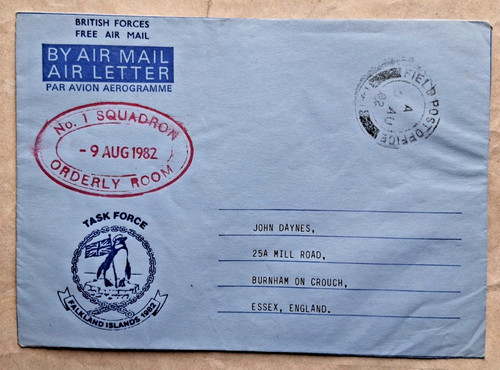 BRITISH FORCES
FREE AIR MAIL
BY AIR MAIL
AIR LETTER
PAR AVION AEROGRAMME
No. 1 SQUADRON
- 9 AUG 1982
ORDERLY ROOM
FIELD POST OFFICE
A
AU
82
TASK FORCE
FALKLAND ISLANDS 1982
JOHN DAYNES,
25A MILL ROAD,
BURNHAM ON CROUCH,
ESSEX, ENGLAND.